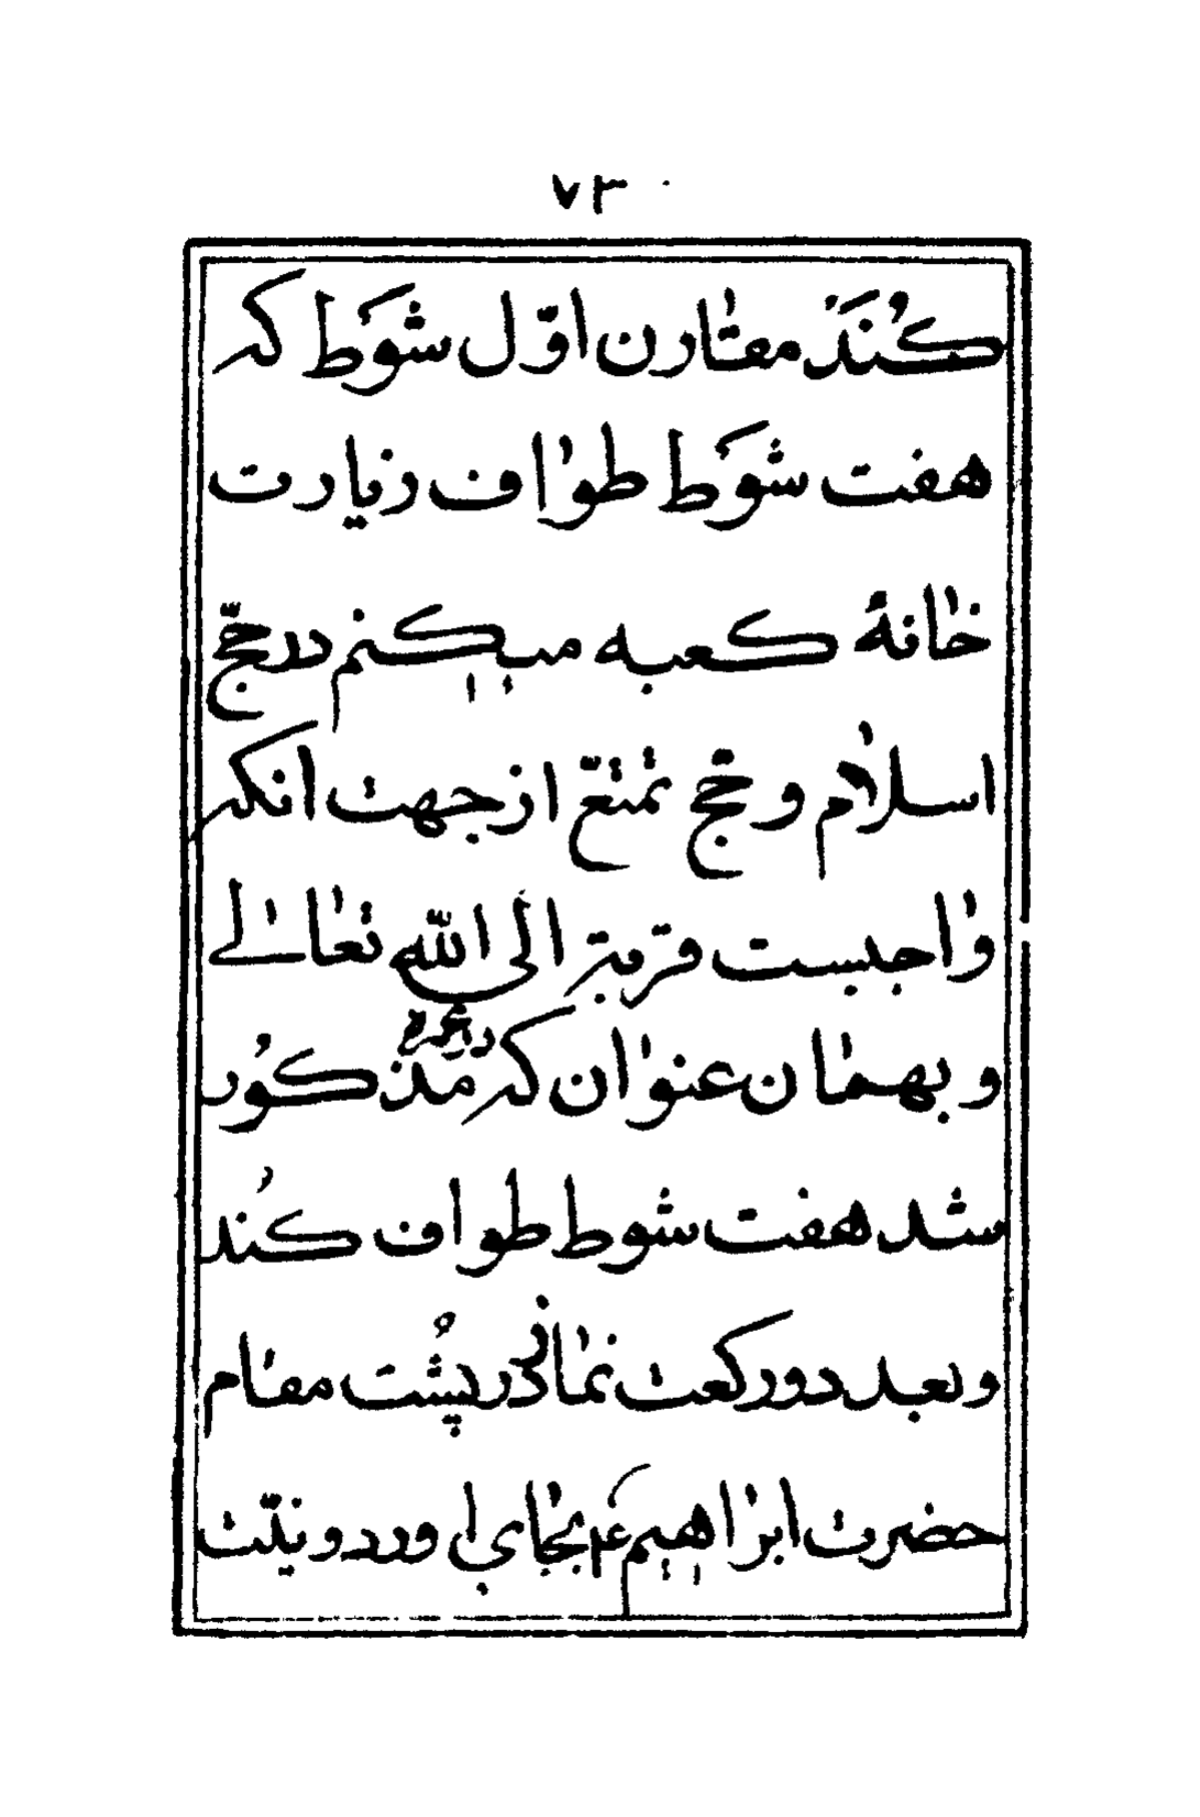 ٧٣
کُنَدْ مقارن اوّل شوْط که
هفت شوْط طواف زیارت
خانهٔ کعبه میکنم در حجّ
اسلام و حجّ تمتّع از جهت انکه
واجبست قربة الی الله تعالی
در عمره
و بهمان عنوان که مذکُور
شد هفت شوط طواف کُند
و بعد دو رکعت نماز در پُشت مقام
حضرت ابراهیم ع بجای اورد و نیّت